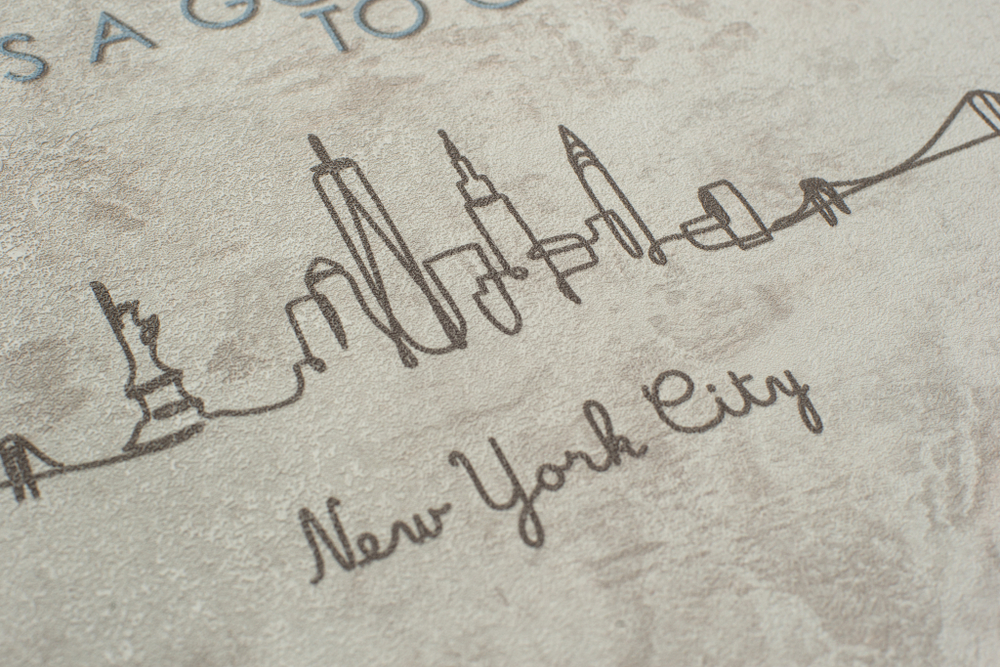 S A
TO
New York City